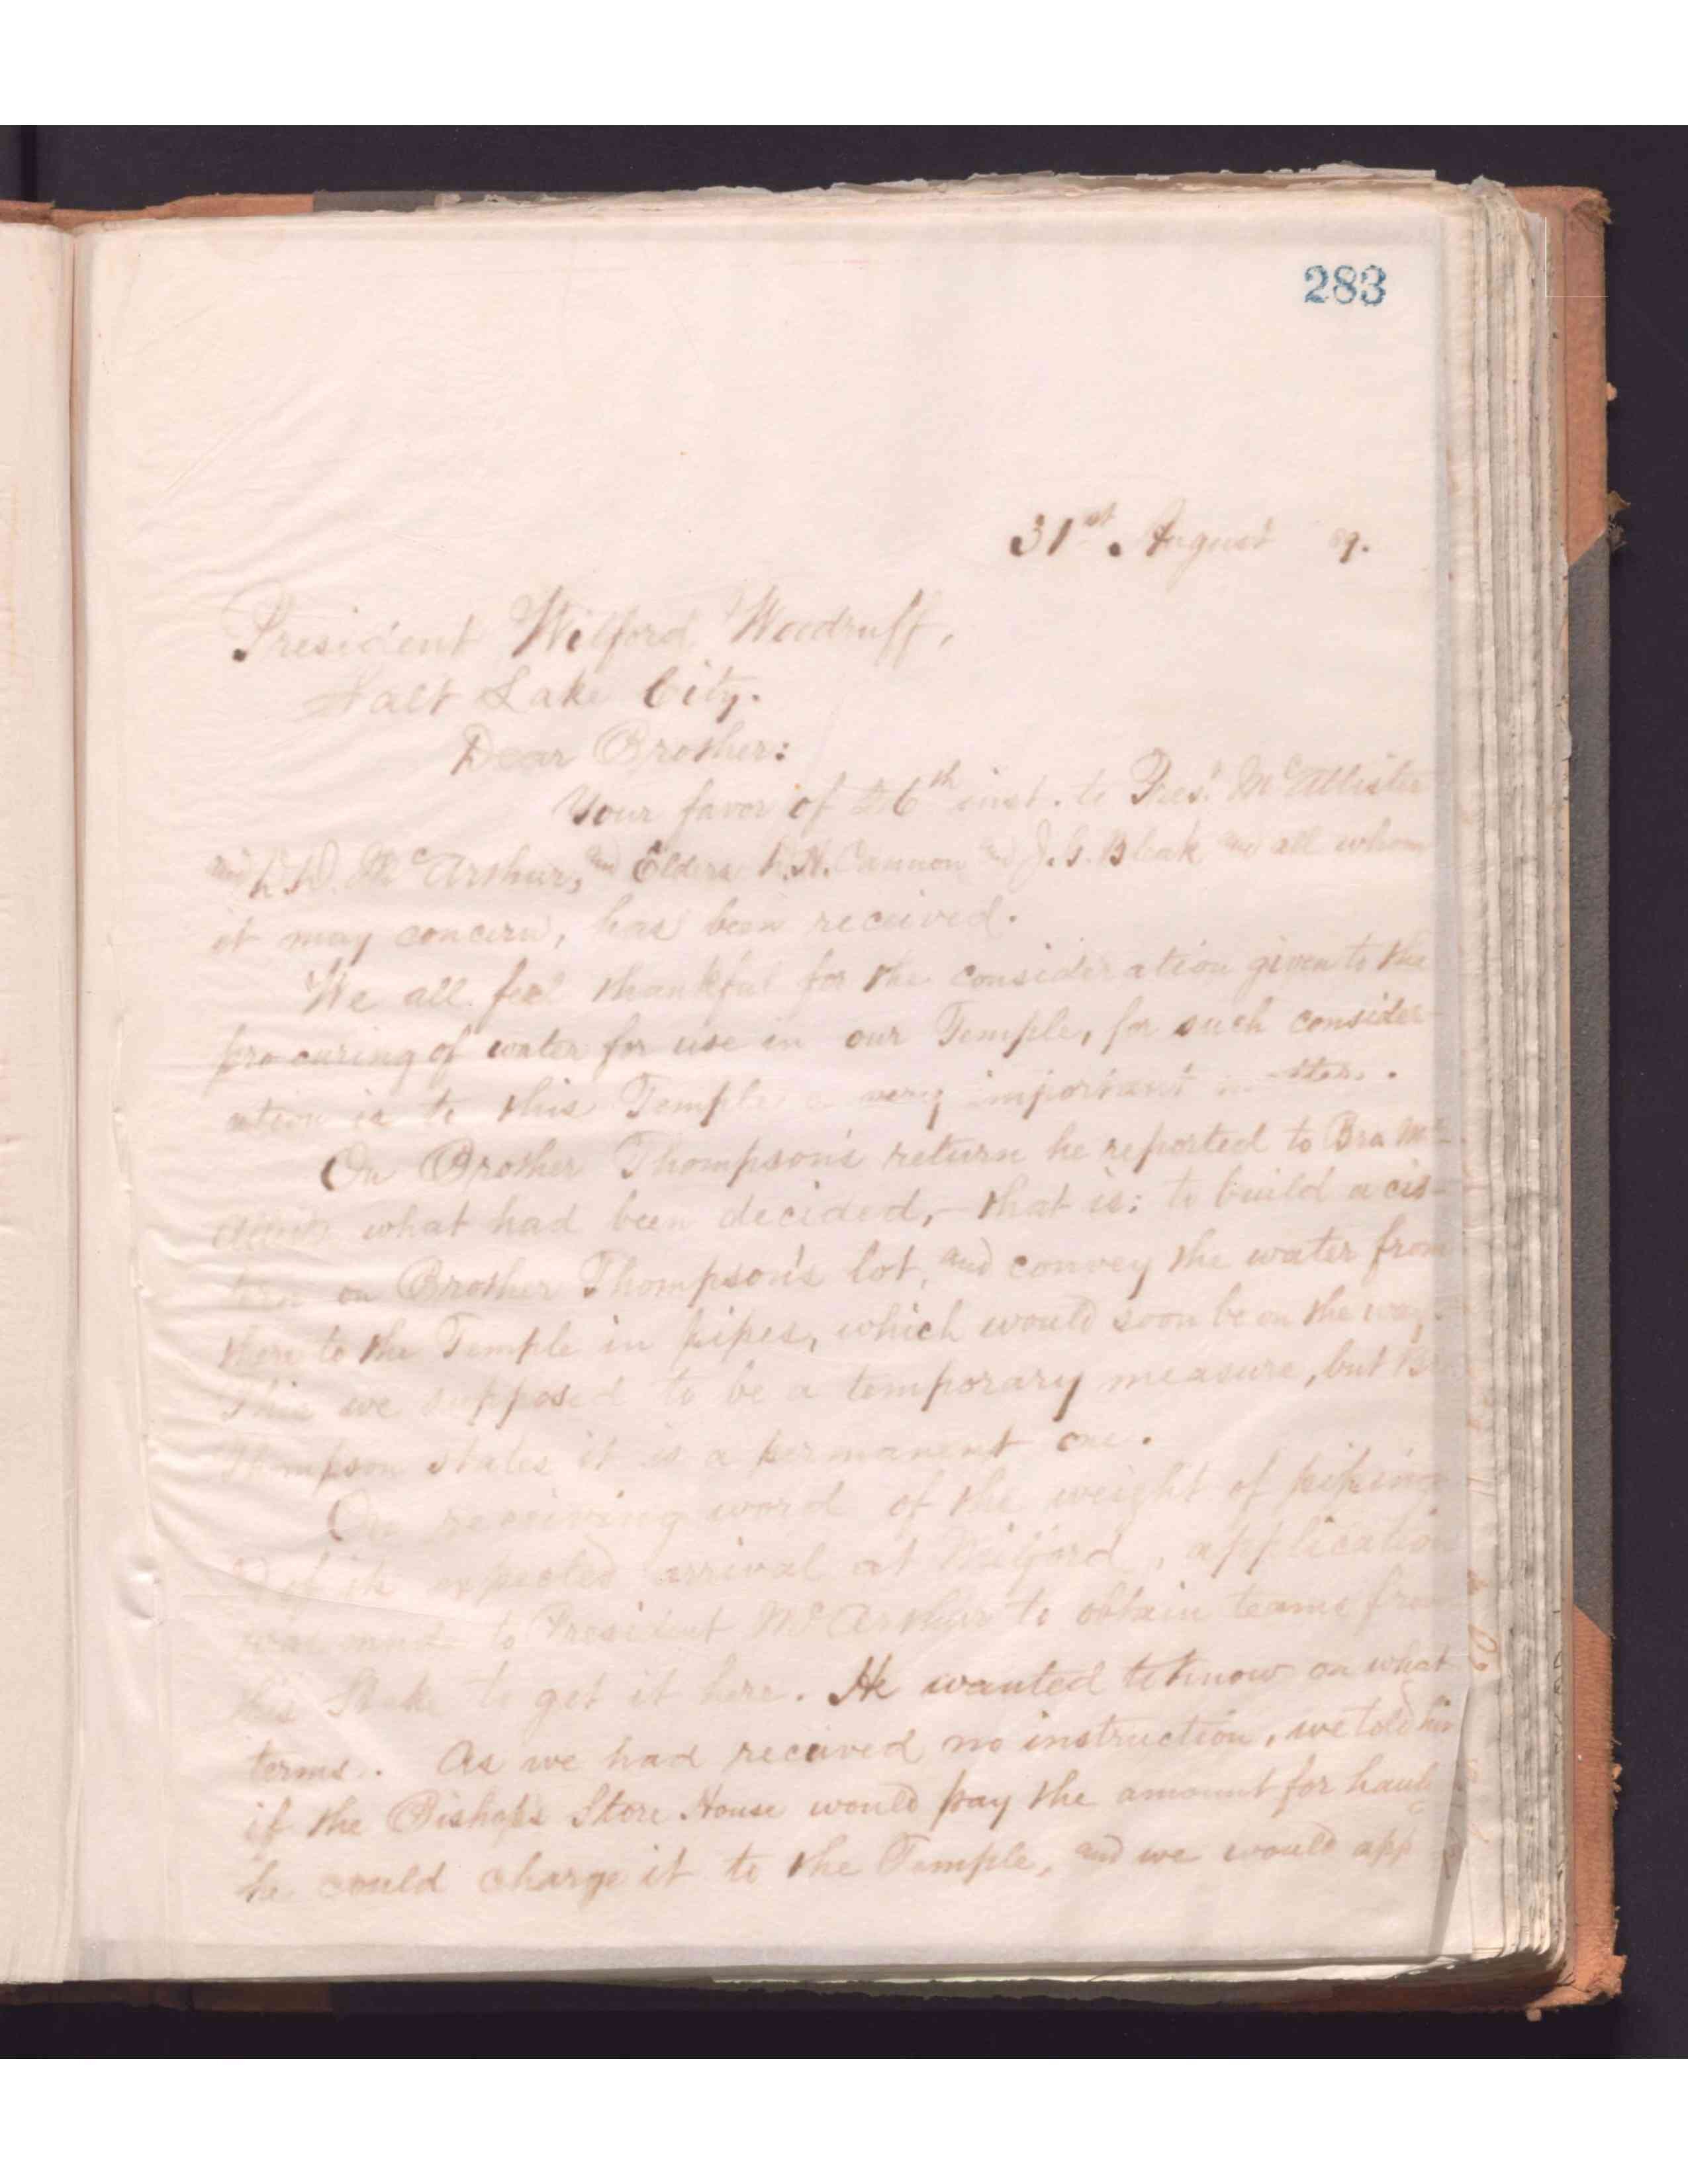 283
31st. August 89.
President Wilford Woodruff,
Salt Lake City.
Dear Brother:
Your favor of 26th inst. to Prest. McAllister
and D. D. McArthur, and Elders D. H. Cannon and J. G. Bleak and all whom
it may concern, has been received.
We all feel thankful for the consideration given to the
procuring of water for use in our Temple, for such consider-
ation is to this Temple a very important matter.
On Brother Thompson's return he reported to Bro Mc-
Allister what had been decided,- that is: to build a cis-
tern on Brother Thompson's lot, and convey the water from
there to the Temple in pipes, which would soon be on the way.
This we supposed to be a temporary measure, but Br.
Thompson states it is a permanent one.
On receiving word of the weight of piping
& of its expected arrival at Milford, application
was made to President McArthur to obtain teams from
this Stake to get it here. He wanted to know on what
terms. As we had received no instruction, we told him
if the Bishop's Store House would pay the amount for haul
he could charge it to the Temple, and we would app